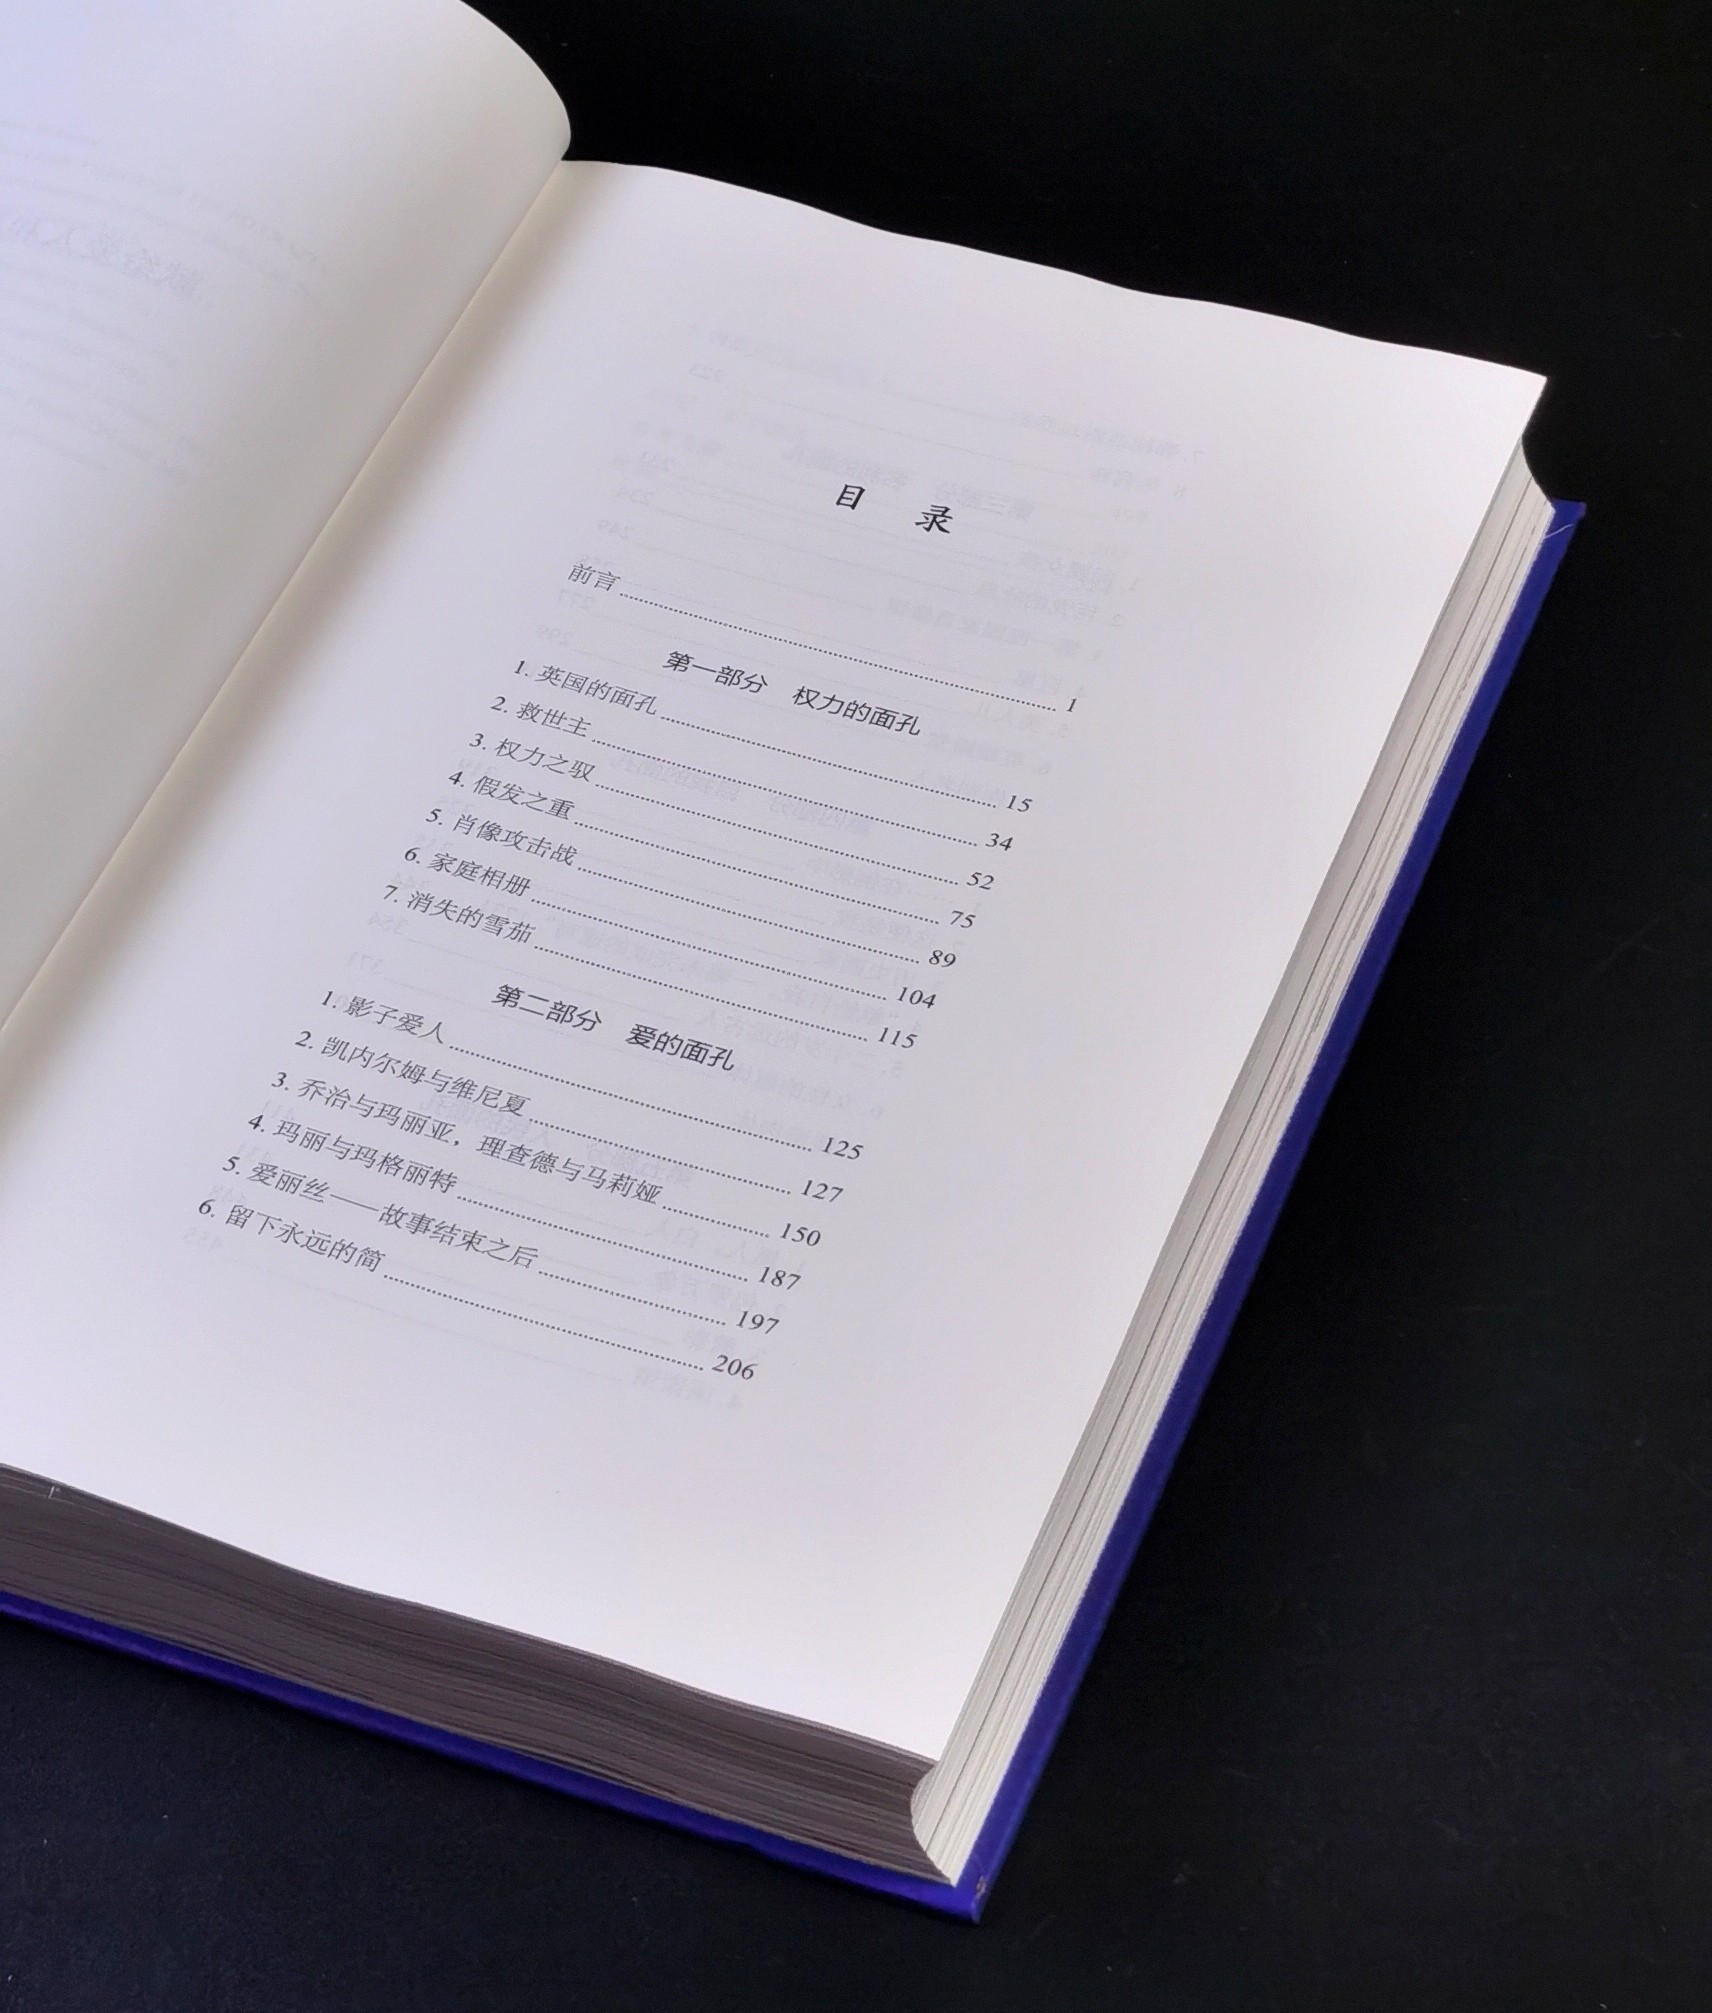 目 录
前言 1
第一部分 权力的面孔
1. 英国的面孔 15
2. 救世主 34
3. 权力之驭 52
4. 假发之重 75
5. 肖像攻击战 89
6. 家庭相册 104
7. 消失的雪茄 115
第二部分 爱的面孔
1. 影子爱人 125
2. 凯内尔姆与维尼夏 127
3. 乔治与玛丽亚，理查德与马莉娅 150
4. 玛丽与玛格丽特 187
5. 爱丽丝——故事结束之后 197
6. 留下永远的简 206